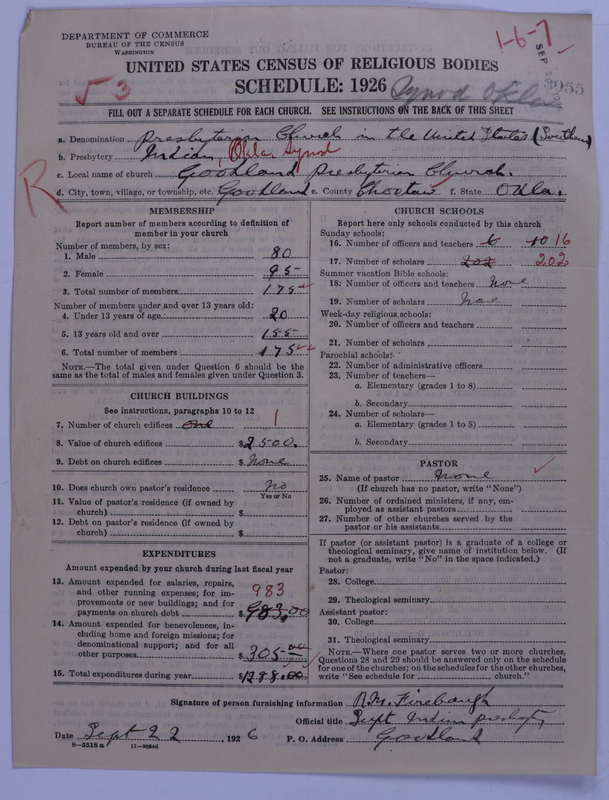 DEPARTMENT OF COMMERCE
BUREAU OF THE CENSUS
WASHINGTON
1-6-7
SEP
3955
UNITED STATES CENSUS OF RELIGIOUS BODIES
√ 3
SCHEDULE: 1926
Synod Okla
FILL OUT A SEPARATE SCHEDULE FOR EACH CHURCH. SEE INSTRUCTIONS ON THE BACK OF THIS SHEET
R
a. Denomination Presbyterian Church in the United States (Southern)
b. Presbytery Indian, Okla. Synod
c. Local name of church Goodland Presbyterian Church.
d. City, town, village, or township, etc. Goodland e. County Choctaw f. State Okla.
MEMBERSHIP
Report number of members according to definition of
member in your church
Number of members, by sex:
1. Male 80
2. Female 95
3. Total number of members 175
Number of members under and over 13 years old:
4. Under 13 years of age 20
5. 13 years old and over 155
6. Total number of members 175
NOTE.—The total given under Question 6 should be
same as the total of males and females given under Question 3.
CHURCH BUILDINGS
See instructions, paragraphs 10 to 12
7. Number of church edifices One 1
8. Value of church edifices $2500.
9. Debt on church edifices $ None
10. Does church own pastor's residence No
Yes or No
11. Value of pastor's residence (if owned by
church) $
12. Debt on pastor's residence (if owned by
church) $
EXPENDITURES
Amount expended by your church during last fiscal year
13. Amount expended for salaries, repairs,
and other running expenses; for im-
provements or new buildings; and for
payments on church debt $983.00
983
14. Amount expended for benevolences, in-
cluding home and foreign missions; for
denominational support; and for all
other purposes $305.00
15. Total expenditures during year $1288.00
CHURCH SCHOOLS
Report here only schools conducted by this church
Sunday schools:
16. Number of officers and teachers 6 +0 16
17. Number of scholars 202 202
Summer vacation Bible schools:
18. Number of officers and teachers None
19. Number of scholars None
Week-day religious schools:
20. Number of officers and teachers
21. Number of scholars
Parochial schools:
22. Number of administrative officers
23. Number of teachers—
a. Elementary (grades 1 to 8)
b. Secondary
24. Number of scholars—
a. Elementary (grades 1 to 8)
b. Secondary
PASTOR
25. Name of pastor None
(If church has no pastor, write "None")
26. Number of ordained ministers, if any, em-
ployed as assistant pastors
27. Number of other churches served by the
pastor or his assistants
If pastor (or assistant pastor) is a graduate of a college or
theological seminary, give name of institution below. (If
not a graduate, write "No" in the space indicated.)
Pastor:
28. College
29. Theological seminary
Assistant pastor:
30. College
31. Theological seminary
NOTE.—Where one pastor serves two or more churches,
Questions 28 and 29 should be answered only on the schedule
for one of the churches; on the schedules for the other churches,
write "See schedule for church."
Signature of person furnishing information R.M. Firebaugh
Official title Supt Indian Presbyty
Date Sept 22, 1926 P. O. Address Goodland
9-5518 a 11-9054d